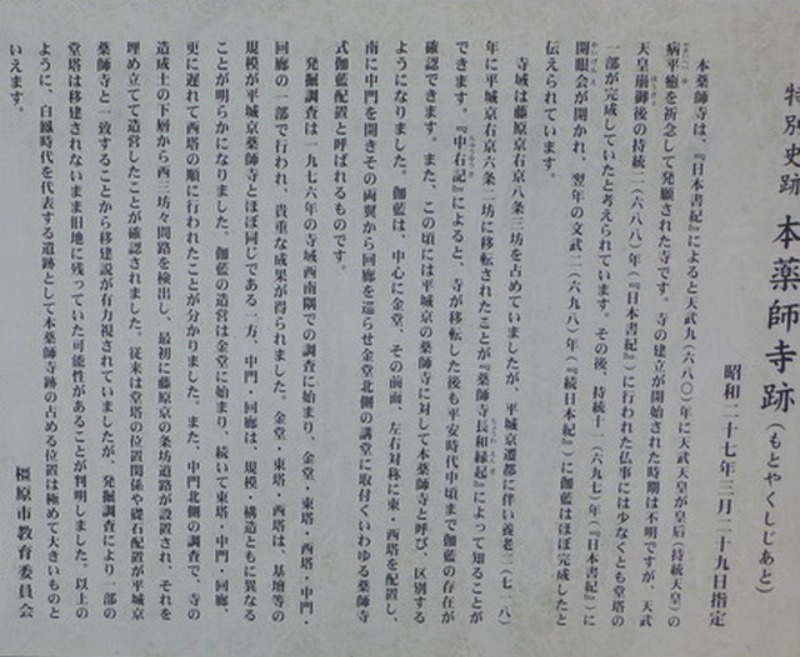 特別史跡 本薬師寺跡(もとやくしじあと)
昭和二十七年三月二十九日指定
本薬師寺は、『日本書紀』によると天武九(六八〇)年に天武天皇が皇后(持統天皇)の
病平癒を祈念して発願された寺です。寺の建立が開始された時期は不明ですが、天武
天皇崩御後の持統二(六八八)年(『日本書紀』)に行われた仏事には少なくとも堂塔の
一部が完成していたと考えられています。その後、持統十一(六九七)年(『日本書紀』)に
開眼会が開かれ、翌年の文武二(六九八)年(『続日本紀』)に伽藍はほぼ完成したと
伝えられています。
寺域は藤原京右京八条三坊を占めていましたが、平城京遷都に伴い養老二(七一八)
年に平城京右京六条二坊に移転されたことが『薬師寺長和縁起』によって知ることが
できます。『中右記』によると、寺が移転した後も平安時代中頃まで伽藍の存在が
確認できます。また、この頃には平城京の薬師寺に対して本薬師寺と呼び、区別する
ようになりました。伽藍は、中心に金堂、その前面、左右対称に東・西塔を配置し、
南に中門を開きその両翼から回廊を巡らせ金堂北側の講堂に取付くいわゆる薬師寺
式伽藍配置と呼ばれるものです。
発掘調査は一九七六年の寺域西南隅での調査に始まり、金堂・東塔・西塔・中門・
回廊の一部で行われ、貴重な成果が得られました。金堂・東塔・西塔は、基壇等の
規模が平城京薬師寺とほぼ同じである一方、中門・回廊は、規模・構造ともに異なる
ことが明らかになりました。伽藍の造営は金堂に始まり、続いて東塔・中門・回廊、
更に遅れて西塔の順に行われたことが分かりました。また、中門北側の調査で、寺の
造成土の下層から西三坊々間路を検出し、最初に藤原京の条坊道路が設置され、それを
埋め立てて造営したことが確認されました。従来は堂塔の位置関係や礎石配置が平城京
薬師寺と一致することから移建説が有力視されていましたが、発掘調査により一部の
堂塔は移建されないまま旧地に残っていた可能性があることが判明しました。以上の
ように、白鳳時代を代表する遺跡として本薬師寺跡の占める位置は極めて大きいものと
いえます。
橿原市教育委員会